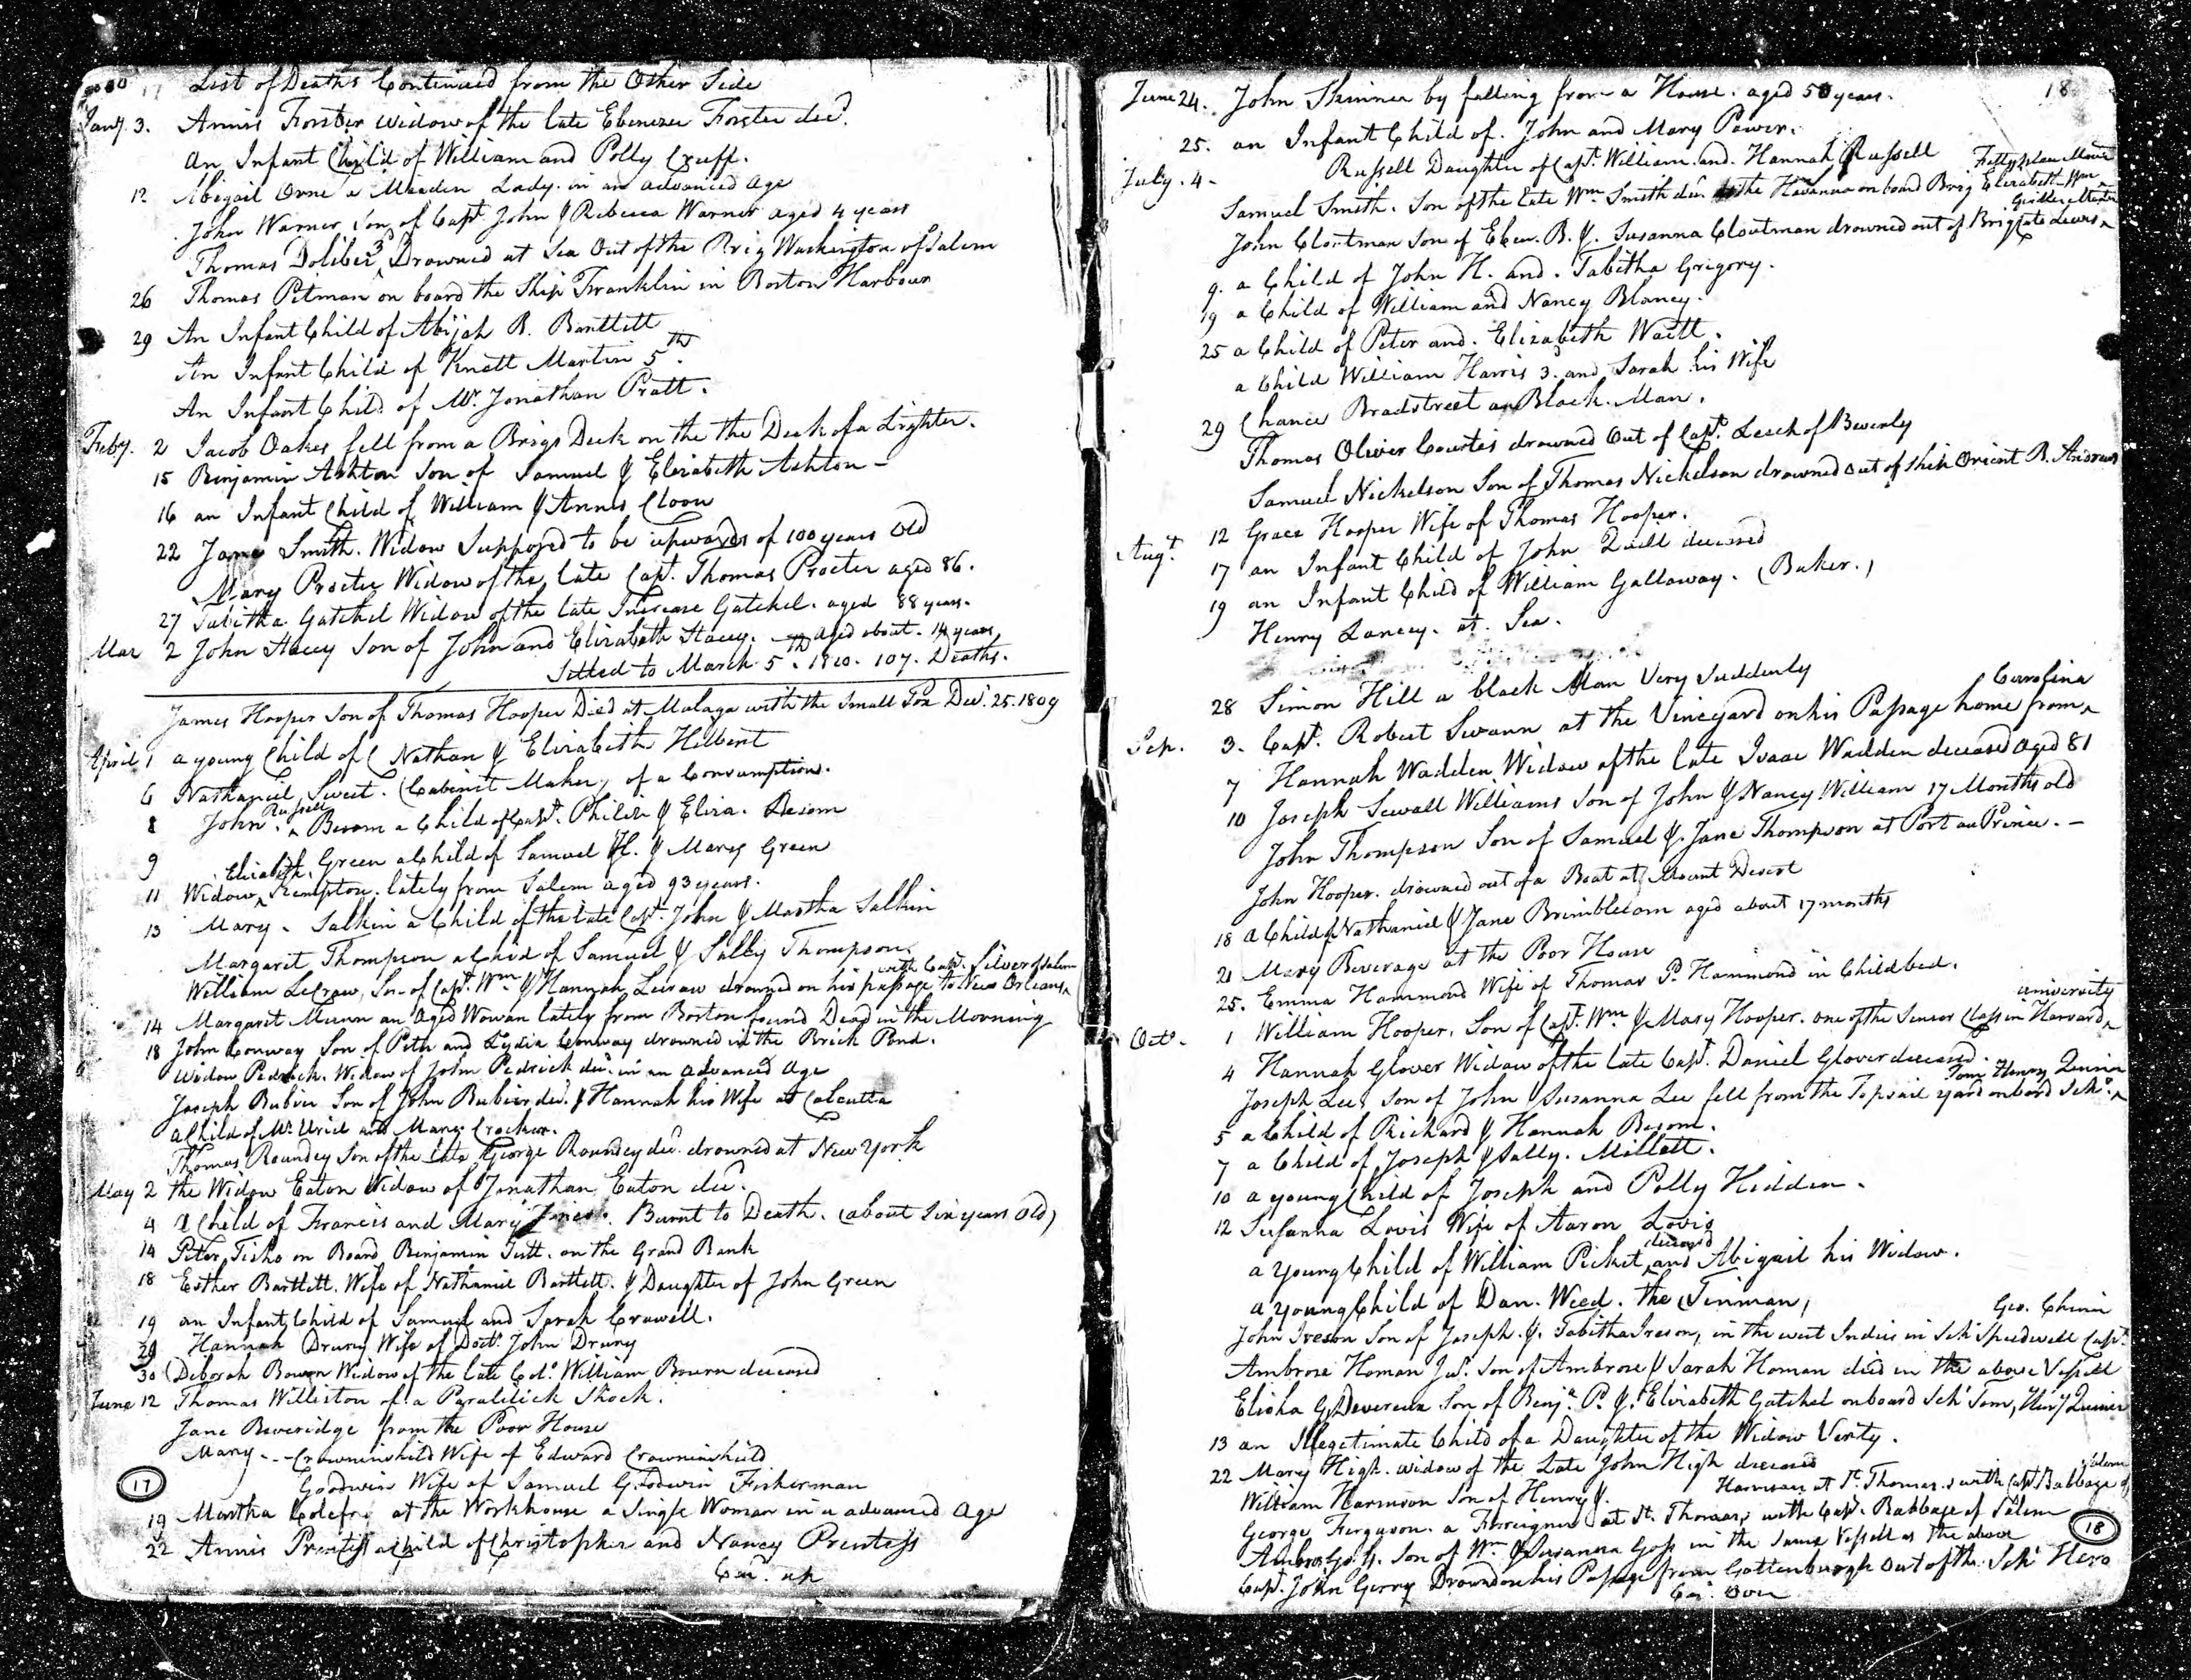 List of Deaths Continued from the Other Side
Jany. 3. Annis Forster widow of the late Ebenezer Forster decd.
an Infant Child of William and Polly Cruff.
12 Abigail Orne a Maiden Lady in an advanced age
John Warner Son of Capt. John & Rebecca Warner aged 4 years
Thomas Doliber 3d Drowned at Sea Out of the Brig Washington of Salem
26 Thomas Pitman on board the Ship Franklin in Boston Harbour
29 An Infant Child of Abijah R. Bartlett
An Infant Child of Knott Martin 5th.
An Infant Child of Mr. Jonathan Pratt.
Feby. 2 Jacob Oakes fell from a Brigs Deck on the the Deck of a Lighter.
15 Benjamin Ashton Son of Samuel & Elizabeth Ashton -
16 an Infant Child of William & Annis Cloon
22 Jane Smith. Widow Supposed to be upwards of 100 years Old
Mary Procter Widow of the late Capt. Thomas Procter aged 86.
27 Tabitha Gatchel Widow of the late Increase Gatchel. aged 88 years.
Mar 2 John Stacey Son of John and Elizabeth Stacey. aged about 14 years
Settled to March 5th. 1810. 107. Deaths.
James Hooper Son of Thomas Hooper Died at Malaga with the Small Pox Dec. 25. 1809
April 1 a young Child of Nathan & Elizabeth Hilbert
6 Nathaniel Sweet. (Cabinet Maker) of a Consumption.
8 John Russell Besom a Child of Capt. Philip & Eliza. Besom
9 Green a Child of Samuel H. & Mary Green
11 Widow Elizabeth Kempton. lately from Salem aged 93 years.
13 Mary - Salkin a Child of the late Capt. John & Martha Salkin
Margaret Thompson a Chid of Samuel & Sally Thompson.
William LeCraw, Son of Capt. Wm & Hannah Lecraw drowned on his passage to New Orleans with Capt. Silver of Salem
14 Margaret Munn an aged Woman lately from Boston found Dead in the Morning
18 John Conway Son of Peter and Lydia Conway drowned in the Brick Pond.
Widow Pedrick. Widow of John Pedrick decd. in an advanced age
Joseph Bubier Son of John Bubier decd. & Hannah his Wife at Calcutta
a Child of Mr. Uriel and Mary Crocker.
Thomas Roundey Son of the late George Roundey decd. drowned at New York
May 2 the Widow Eaton Widow of Jonathan Eaton decd.
4 a Child of Francis and Mary Jones. Burnt to Death. (about Six years Old)
14 Peter Tisho on Board Benjamin Tutt. on the Grand Bank
18 Esther Bartlett. Wife of Nathaniel Bartlett. & Daughter of John Green
19 an Infant Child of Samuel and Sarah Crowell.
29 Hannah Drury Wife of Doct. John Drury
30 Deborah Bourn Widow of the late Col. William Bourn deceased
June 12 Thomas Williston of a Paralitick Shock.
Jane Beveridge from the Poor House
Mary -- Crowninshild Wife of Edward Crowninshild
Goodwin Wife of Samuel Goodwin Fisherman
17
19 Martha at the Workhouse a Single Woman in a advanced age
22 Annis Prentess a Child of Christopher and Nancy Prentess
Card. up
18
June 24. John Skinner by falling from a House. aged 50 years.
25. an Infant Child of. John and Mary Power.
July. 4 - Russell Daughter of Capt. William. and. Hannah Russell
Samuel Smith. Son of the late Wm. Smith decd. the Havanna on board Brig Elizabeth
John Cloutman Son of Eben. B. &. Susanna Cloutman drowned out of Brig Cato Lewis
9. a Child of John H. and. Tabitha Grigory.
19 a Child of William and Nancy Blaney.
25 a Child of Peter and. Elizabeth Waitt.
a Child William Harris 3d. and Sarah his Wife
29 Chance Bradstreet a Black Man.
Thomas Oliver Courtis drowned Out of Capt. Leech of Beverly
Samuel Nickelson Son of Thomas Nickelson drowned out of Ship Orient R. Andrews
Augt. 12 Grace Hooper Wife of Thomas Hooper.
17 an Infant Child of John Quill deceased
19 an Infant Child of William Galloway. (Baker.)
Henry Lancey. at. Sea.
28 Simon Hill a black Man Very Suddenly
Sep. 3. Capt. Robert Swann at the Vineyard on his Passage home from Carolina
7 Hannah Wadden Widow of the late Isaac Wadden deceased aged 81
10 Joseph Sewall Williams Son of John & Nancy William 17 Months old
John Thompson Son of Samuel &. Jane Thompson at Port au Prince. -
John Hooper. drowned out of a Boat at Mount Desert
18 a Child of Nathaniel & Jane Brimblecom aged about 17 months
21 Mary Beverage at the Poor House
25. Emma Hammond Wife of Thomas P. Hammond in Childbed.
Octo. 1 William Hooper. Son of Capt. Wm & Mary Hooper. one of the Senior Class in Harvard university
4 Hannah Glover Widow of the late Capt. Daniel Glover deceased
Joseph Lee, Son of John & Susanna Lee fell from the Topsail yard on bord Schr. Tom, Henry Quiner
5 a Child of Richard & Hannah Besom.
7 a Child of Joseph & Sally. Millett.
10 a young Child of Joseph and Polly Hidden.
12 Susanna Lovis Wife of Aaron Lovis
a Young Child of William Picket deceased and Abigail his Widow.
a Young Child of Dan. Weed. the (Tinman)
John Ireson Son of Joseph. &. Tabitha Ireson, in the west Indies in Schr Speedwell Capt. Geo. Chinn
Ambrose Homan Jur. Son of Ambrose & Sarah Homan died in the above Vessell
Elisha G. Devereux Son of Benja. P. &. Elizabeth Gatchel on board Schr Tom, Heny Quiner
13 an Illegitimate Child of a Daughter of the Widow Verty.
22 Mary High. widow of the Late John High deceased
William Harrison Son of Henry &. Harrison at St. Thomas. with Capt. Babbage of Salem
George Ferguson. a Foreigner at St. Thomas; with Capt. Babbage of Salem
Ambros Goss. Son of Wm & Susanna Goss in the Same Vessell as the above
Capt. John Gerry Drownd on his Passage from Gottenburgh out of the Schr Hero
18
Card. Over